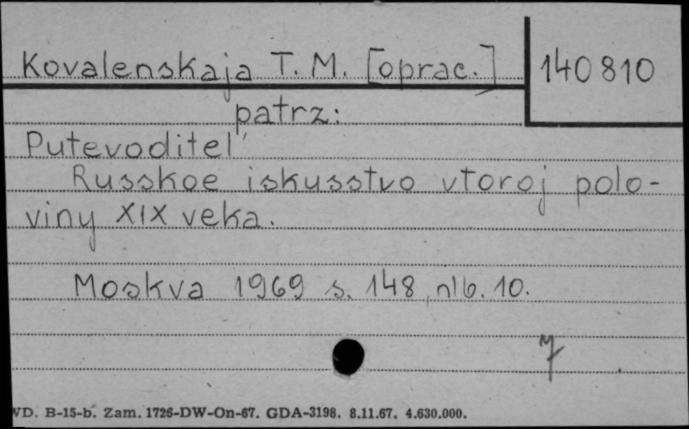 Kovalenskaja T. M. [oprac.] 140 810
patrz:
Putevoditel'
Russkoe iskusstvo vtoroj polo-
viny XIX veka.
Moskva 1969 s. 148, nlb. 10.
VD. B-15-b. Zam. 1726-DW-On-67. GDA-3198. 8.11.67. 4.630.000.